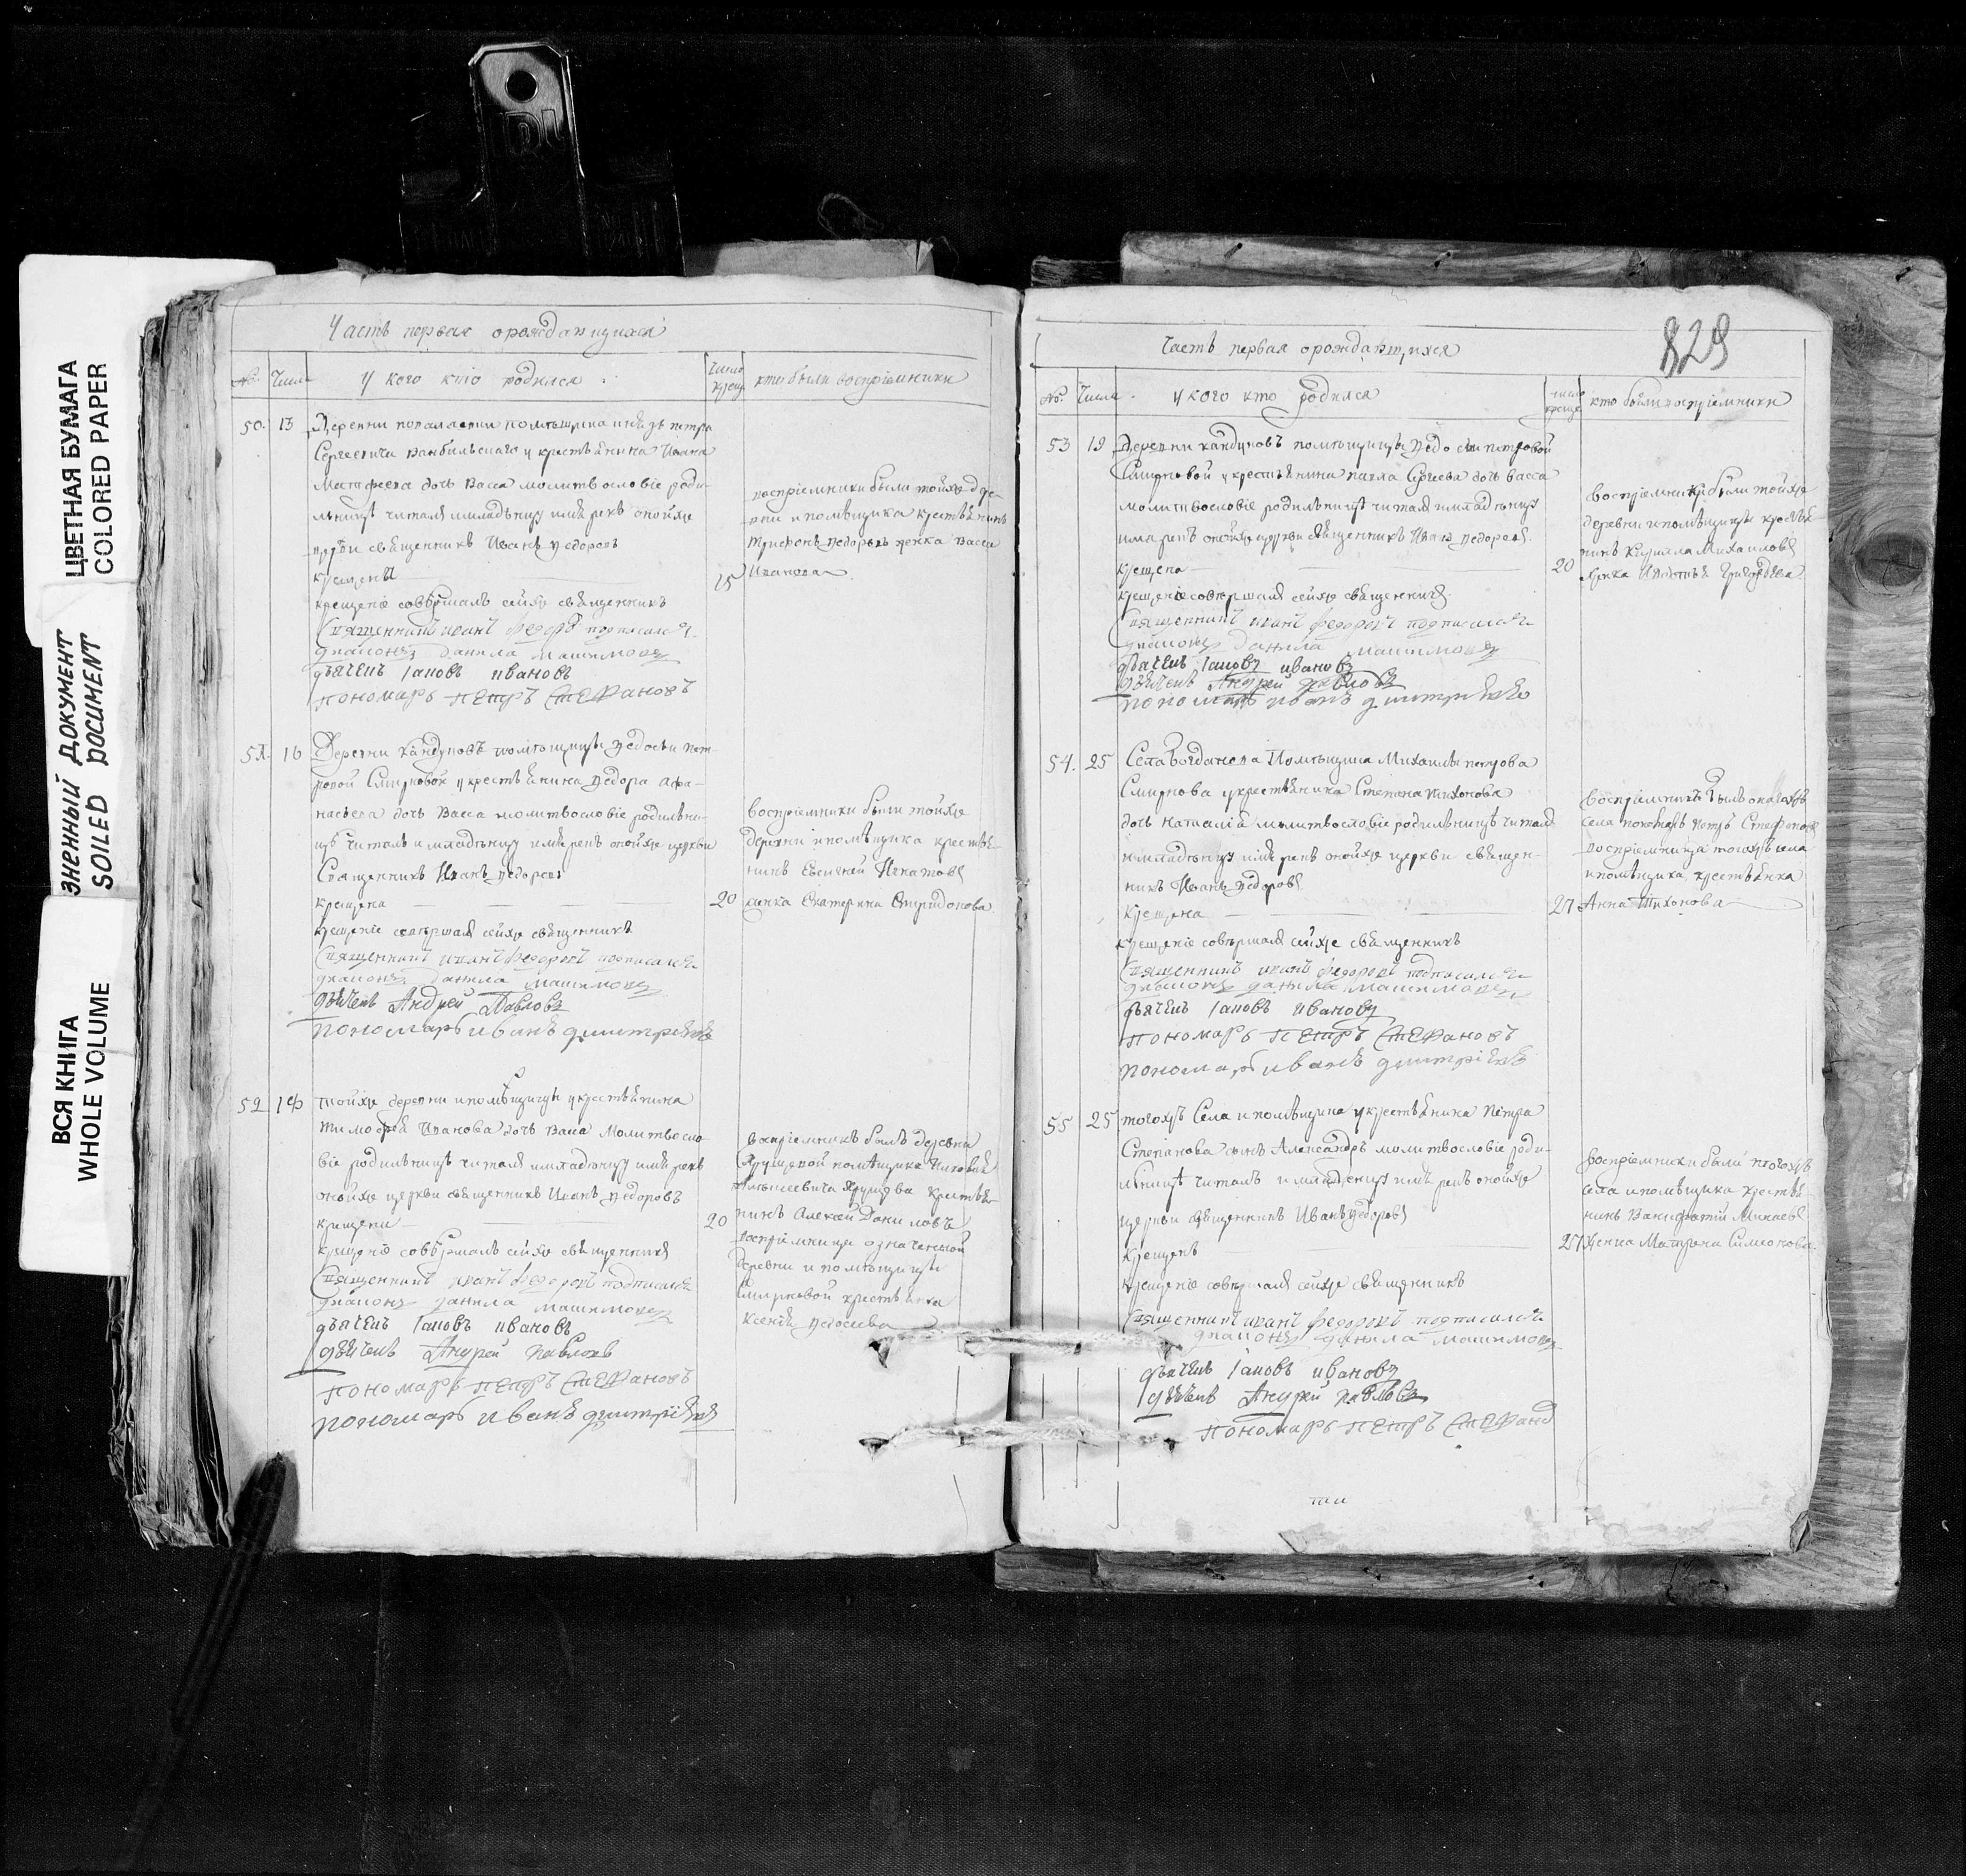 ЦВЕТНАЯ БУМАГА
COLORED PAPER
ЗНЕННЫЙ ДОКУМЕНТ
SOILED DOCUMENT
ВСЯ КНИГА
WHOLE VOLUME
Часть первая ораждающихся
№ Числа У кого кто родился число крещ кто были воспріемники
50. 13 Деревни помѣщика князь петра
Сергеевича у крестьянина Ивана
Матфеева дочь Васса молитвословіе роди-
льницѣ читалъ имладѣнцу имя рекъ онойже
церкви священникъ Иванъ Ѳедоровъ
крещена 15
крещеніе совѣршалъ сейже священникъ
Священникъ иванъ федоровъ подписался
диаконъ данила
дьячекъ Iаковъ ивановъ
пономарь петръ стефановъ
воспріемники были тойже дере-
вни и помѣщика крестьянинъ
Трифонъ Ѳедоровъ женка Васса
Иванова
51. 16 Деревни кандуковъ помѣщицы Ѳедосьи пет-
ровой Смирновой у крестьянина Ѳедора афа-
насьева дочь Васса молитвословіе родильни-
цѣ читалъ и младѣнцу имя рекъ онойже церкви
Священникъ Иванъ Ѳедоровъ
крещена 20
крещеніе совершалъ сейже священникъ
Священникъ иванъ федоровъ подписался
диаконъ данила
дьячекъ Андрей Павловъ
пономарь иванъ димитріевъ
воспріемники были тойже
деревни ипомѣщика крестья-
нинъ Евсигней Игнатовъ
женка Екатерина Спиридонова
52 18 тойже деревни ипомѣщицы у крестьянина
тимофея Иванова дочь Васса молитвосло-
віе родильницѣ читалъ имладѣнцу имя рекъ
онойже церкви священникъ Иванъ Ѳедоровъ
крещена 20
крещеніе совершалъ сейже священникъ
Священникъ иванъ федоровъ подписался
диаконъ данила
дьячекъ Iаковъ ивановъ
дьячекъ Андрей Павловъ
пономарь петръ стефановъ
пономарь иванъ димитріевъ
воспріемникъ былъ деревни
Хрущевой помѣщика
Хрущова крестья-
нинъ Алексей Даниловъ
воспріемница означенной
деревни и помѣщицы
Смирновой крестьянка
Ксенья Ѳедосеева
829
Часть первая ораждающихся
№ Числа У кого кто родился число креще кто были воспріемники
53 19 Деревни кандуковъ помѣщицы Ѳедосьи петровой
Смирновой у крестьянина павла Сергеева дочь васса
молитвословіе родильницѣ читалъ имладѣнцу
имя рекъ онойже церкви священникъ Иванъ Ѳедоровъ
крещена 20
крещеніе совершалъ сейже священникъ
Священникъ иванъ федоровъ подписался
диаконъ данила
дьячекъ Iаковъ ивановъ
дьячекъ Андрей Павловъ
пономарь иванъ димитріевъ
воспріемники были тойже
деревни ипомѣщицы крестья-
нинъ Кирилла Михаиловъ
женка Григорьева
54. 25 Села Богданова Помѣщика Михаилы петрова
Смирнова у крестьянина Степана тихонова
дочь наталія молитвословіе родильницѣ читалъ
имладѣнцу имя рекъ онойже церкви священ-
никъ Иванъ Ѳедоровъ
крещена 27
крещеніе совершалъ сейже священникъ
Священникъ иванъ федоровъ подписался
диаконъ данила
дьячекъ Iаковъ ивановъ
пономарь петръ стефановъ
пономарь иванъ димитріевъ
воспріемникъ былъ онагожъ
села пономарь петръ Стефановъ
воспріемница тогожъ села
ипомѣщика крестьянка
Анна Тихонова
55 25 тогожъ Села и помѣщика у крестьянина Петра
Степанова сынъ Александръ молитвословіе роди-
льницѣ читалъ имладѣнцу имя рекъ онойже
церкви священникъ Иванъ Ѳедоровъ
крещенъ 27
крещеніе совершалъ сейже священникъ
Священникъ иванъ федоровъ подписался
диаконъ данила
дьячекъ Iаковъ ивановъ
дьячекъ Андрей Павловъ
пономарь петръ стефановъ
воспріемники были тогожъ
села ипомѣщика крестья-
нинъ Вонифатій Минаевъ
женка Матрона Симеонова